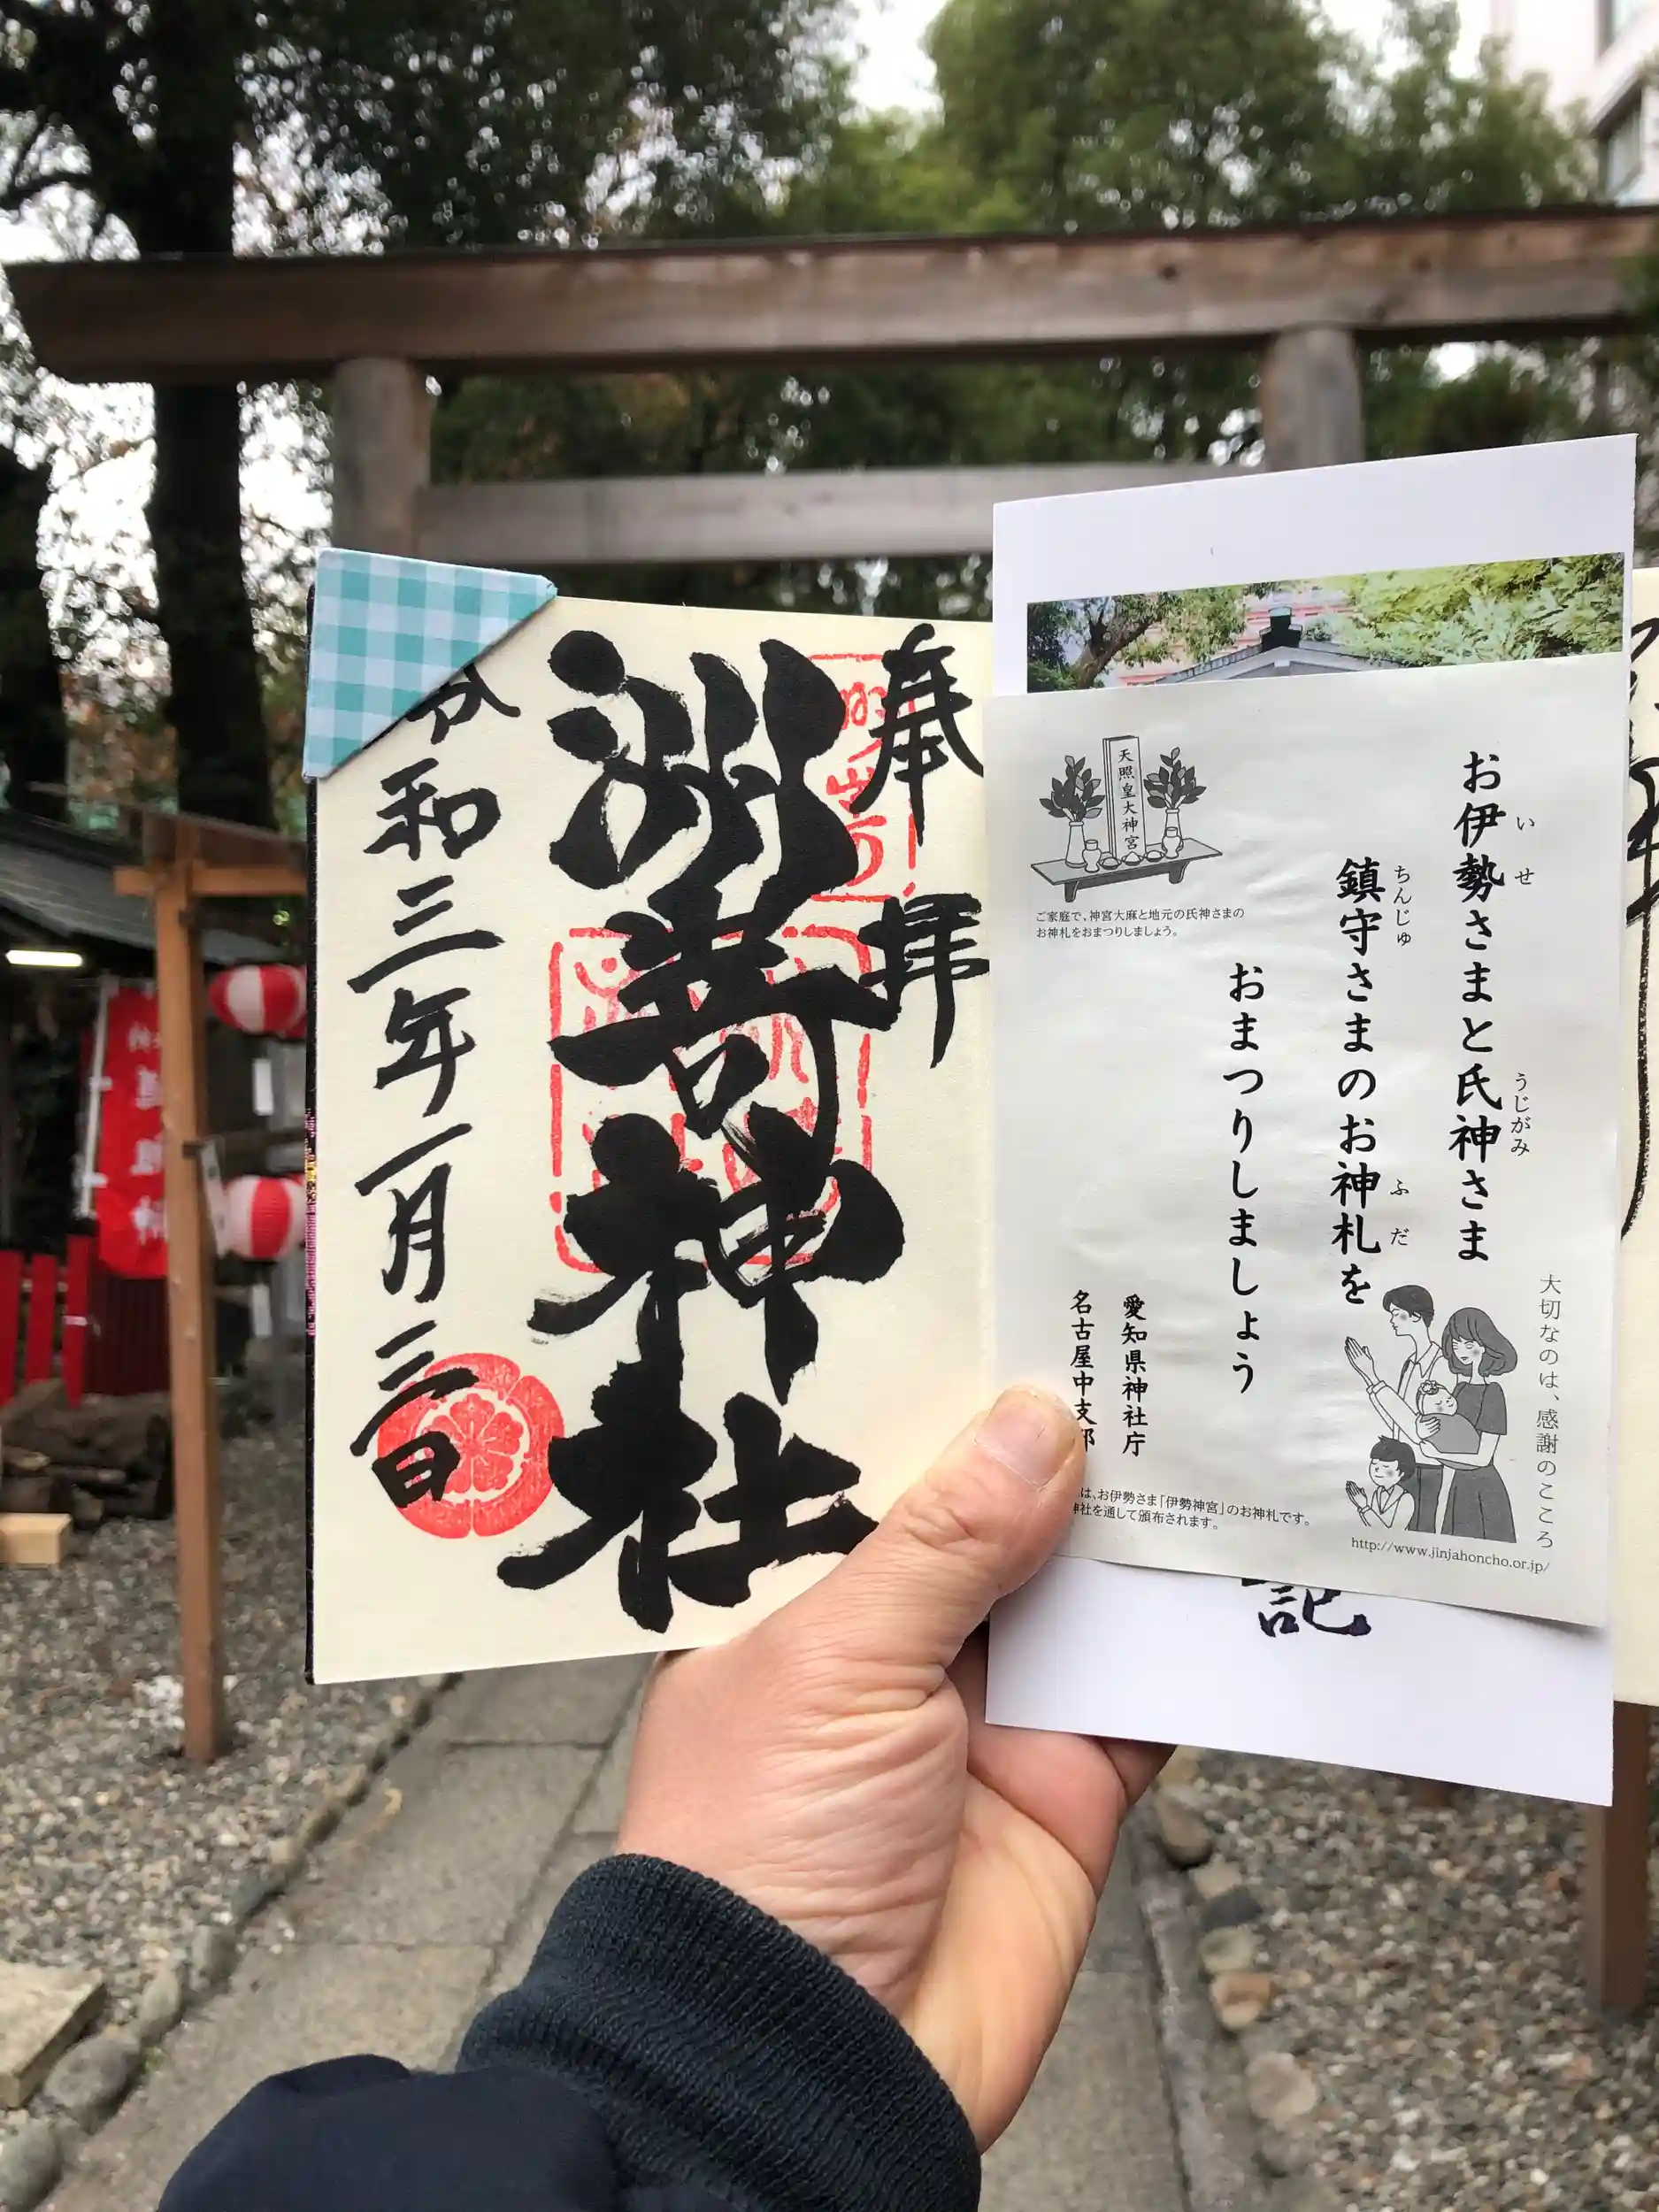 奉拝
洲嵜神社
令和三年一月三日
お伊勢さまと氏神さま
いせ
うじがみ
鎮守さまのお神札を
ちんじゅ
ふだ
おまつりしましょう
天照皇大神宮
ご家庭で、神宮大麻と地元の氏神さまの
お神札をおまつりしましょう。
愛知県神社庁
名古屋中支部
は、お伊勢さま「伊勢神宮」のお神札です。
神社を通して頒布されます。
大切なのは、感謝のこころ
http://www.jinjahoncho.or.jp/
記